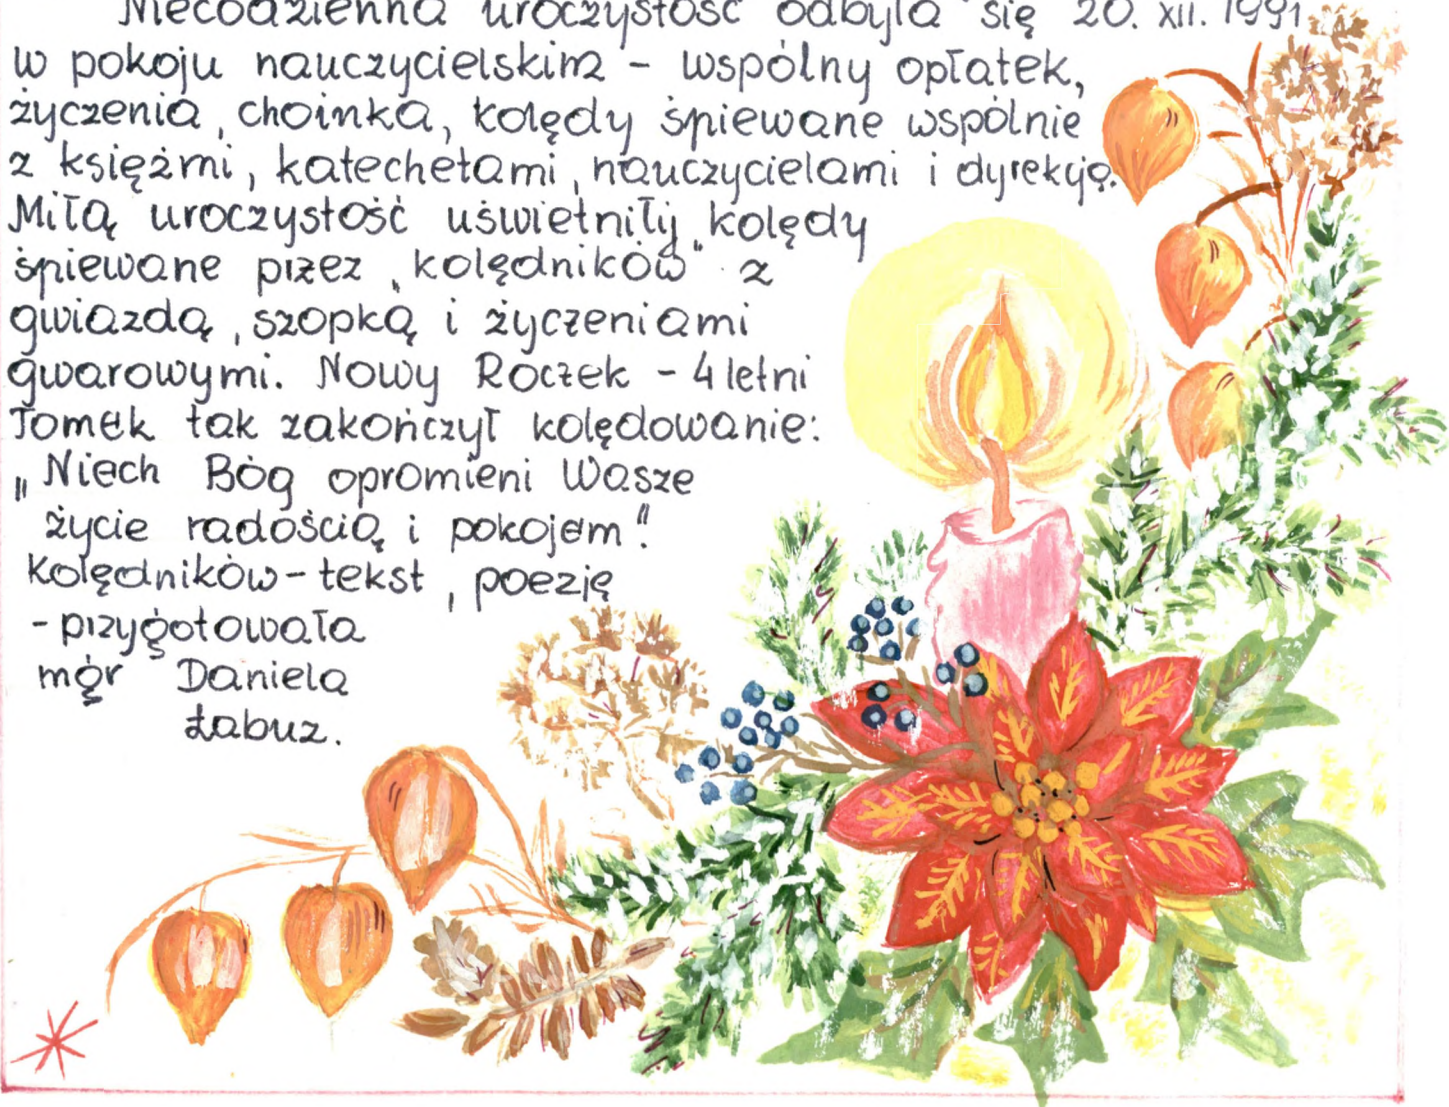 Niecodzienna uroczystość odbyła się 20. XII. 1991.
w pokoju nauczycielskim - wspólny opłatek,
życzenia, choinka, kolędy śpiewane wspólnie
z księżmi, katechetami, nauczycielami i dyrekcją.
Miłą uroczystość uświetniły kolędy
śpiewane przez „kolędników” z
gwiazdą, szopką i życzeniami
gwarowymi. Nowy Roczek - 4 letni
Tomek tak zakończył kolędowanie:
„Niech Bóg opromieni Wasze
życie radością i pokojem”.
Kolędników - tekst, poezję
- przygotowała
mgr Daniela
Łabuz.